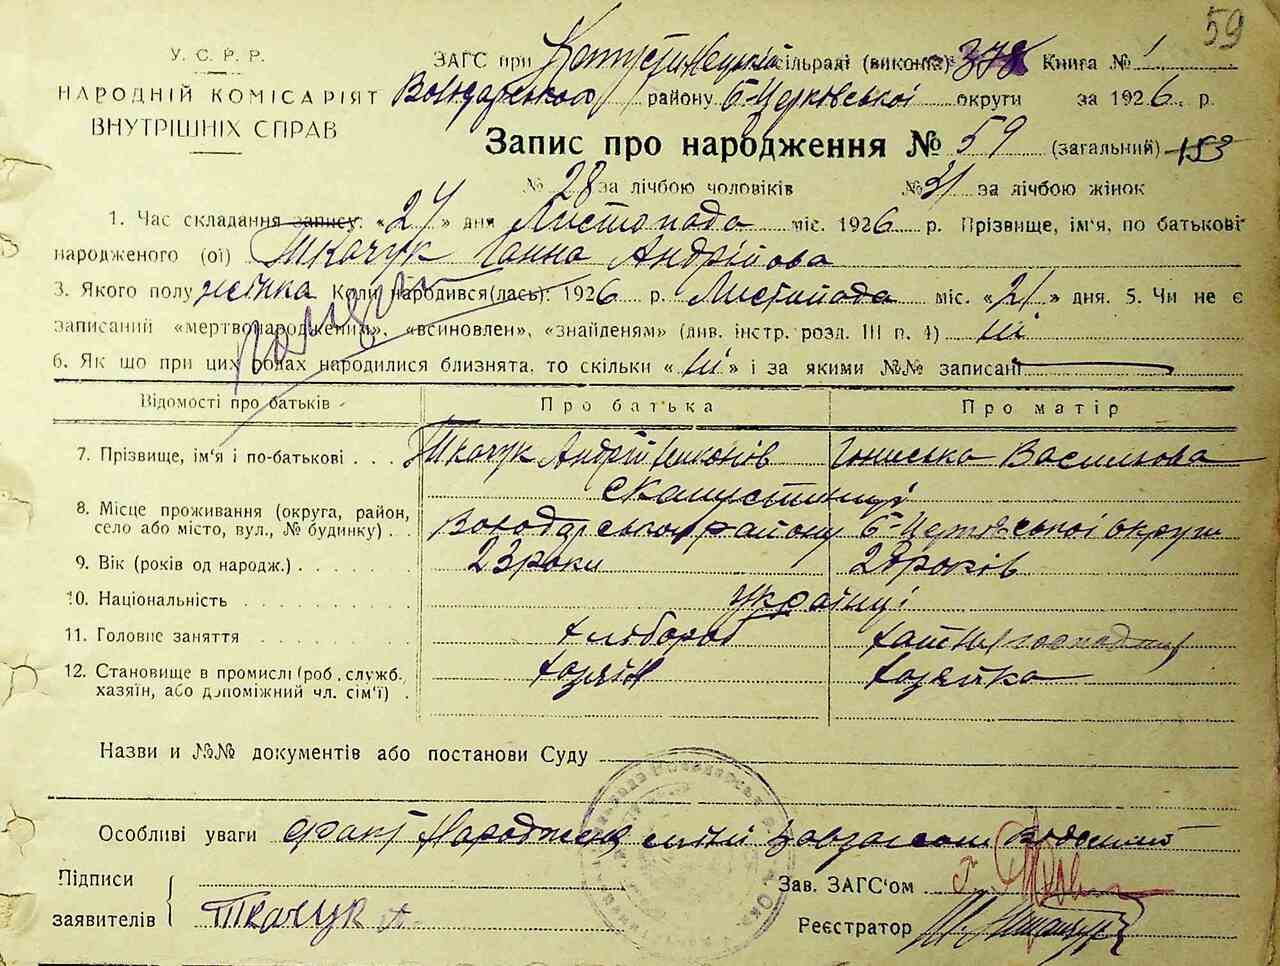 59
У. С. Р. Р.
НАРОДНІЙ КОМІСАРІЯТ
ВНУТРІШНІХ СПРАВ
ЗАГС при сільраді (виконк.) Книга № 1
Володарського району Б-Церковської округи за 1926 р.
Запис про народження № 59 (загальний) 153
№ 28 за лічбою чоловіків № 31 за лічбою жінок
1. Час складання запису: «24» дня Листопада міс. 1926 р. Прізвище, ім'я, по батькові
народженого (ої) Ткачук Ганна Андрійова
3. Якого полу жінка Коли народився(лась): 1926 р. Листопада міс. «21» дня. 5. Чи не є
записаний «мертвонародженим», «всиновлен», «знайденям» (див. інстр. розд. III п. 4) ні
6. Як що при цих родах народилися близнята, то скільки «ні» і за якими №№ записані
Відомості про батьків Про батька Про матір
7. Прізвище, ім'я і по-батькові . . . Ткачук Андрій Никонів Василіова
с Капустинці
8. Місце проживання (округа, район, село або місто, вул., № будинку) . . Володарського району Б-Церківської округи
9. Вік (років од народж.) . . . . . 23 роки 28 років
10. Національність . . . . . . . . . українці
11. Головне заняття . . . . . . . . хлібороб хатня господин
12. Становище в промислі (роб., служб. хазяїн, або допоміжний чл. сім'ї) . хазяїн хазяйка
Назви и №№ документів або постанови Суду
Особливі уваги факт Народження
Підписи
заявителів
Ткачук А.
Зав. ЗАГС'ом
Реєстратор